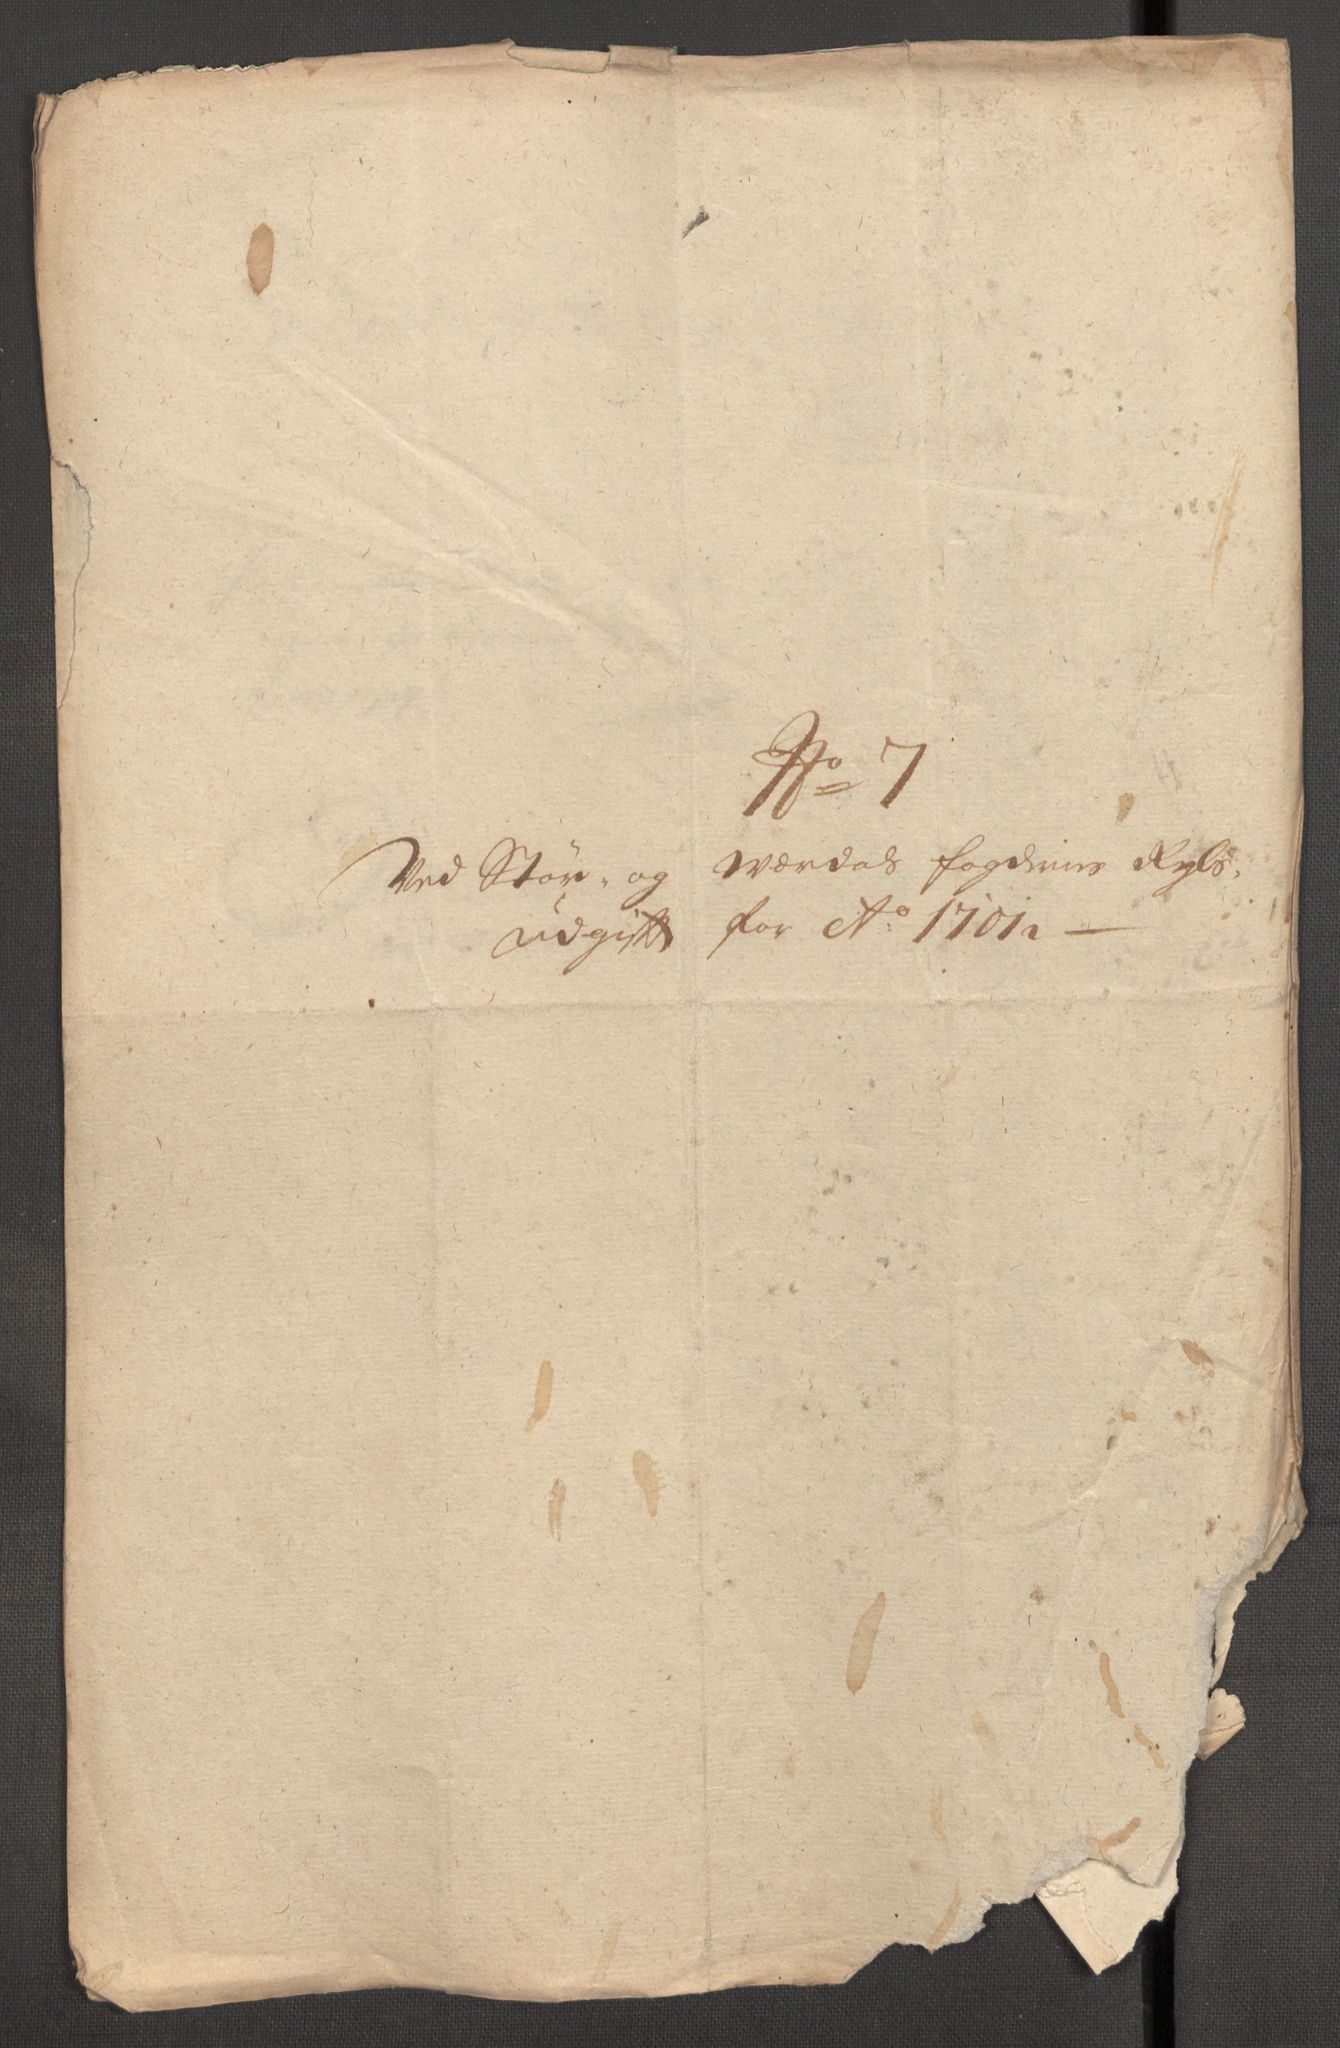 No 7
Ved Stør- og Værdals fogderies
udgifft for Ao 1701 —